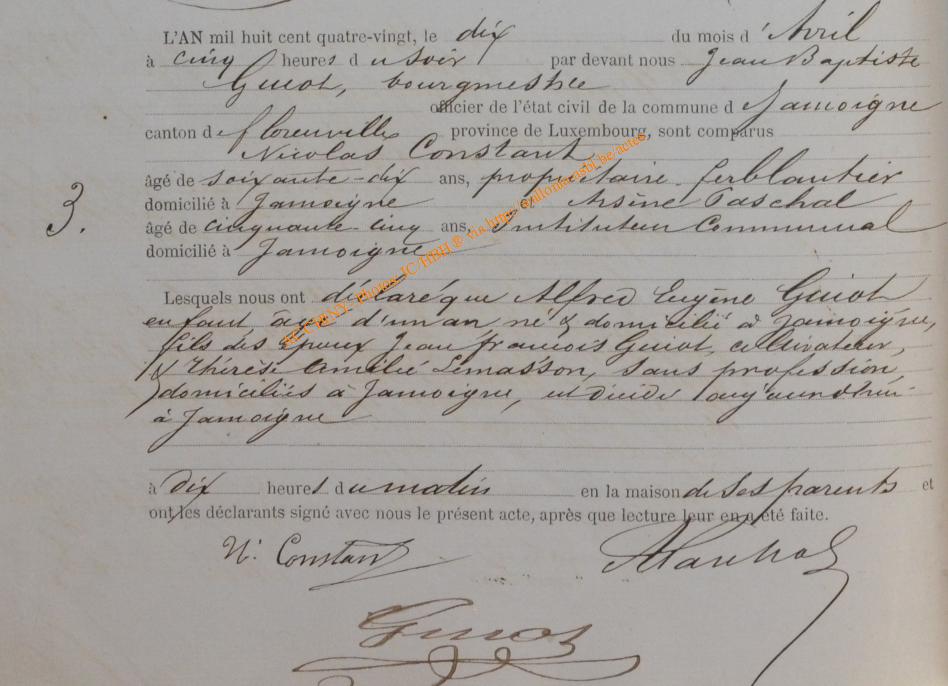 L'AN mil huit cent quatre-vingt, le dix du mois d'Avril
à cinq heures d u soir par devant nous Jean Baptiste
Guiot, bourgmestre
officier de l'état civil de la commune d e Jamoigne
canton d e florenville province de Luxembourg, sont comparus
Nicolas Constant
âgé de soixante-dix ans, propriétaire ferblantier
domicilié à Jamoigne & Arsène Paschal
3. âgé de cinquante-cinq ans, Instituteur Communal
domicilié à Jamoigne
Lesquels nous ont déclaré que Alfred Eugène Guiot
enfant âgé d'un an né & domicilié à Jamoigne,
fils des époux Jean françois Guiot, cultivateur,
& Thérèse Amélie Lemasson, sans profession,
domiciliés à Jamoigne, est décédé aujourd'hui
à Jamoigne
à dix heures d u matin en la maison de ses parents et
ont les déclarants signé avec nous le présent acte, après que lecture leur en a été faite.
N. Constant APaschal
Guiot